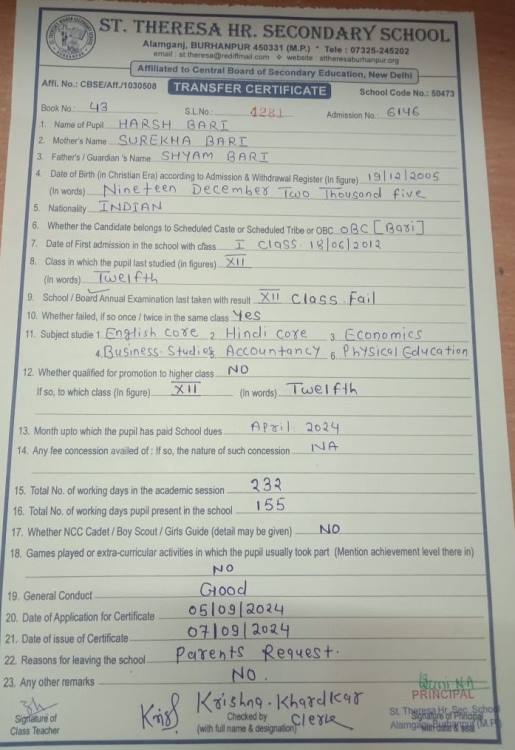 ST. THERESA HR. SECONDARY SCHOOL
Alamganj, BURHANPUR 450331 (M.P.) * Tele : 07325-245202
email : st.theresa@rediffmail.com website : sttheresaburhanpur.org
Affiliated to Central Board of Secondary Education, New Delhi
Affi. No.: CBSE/Aff./1030508 TRANSFER CERTIFICATE School Code No.: 50473
Book No.: 43 S.L.No.: 4281 Admission No. 6146
1. Name of Pupil HARSH BARI
2. Mother's Name SUREKHA BARI
3. Father's / Guardian 's Name SHYAM BARI
4. Date of Birth (in Christian Era) according to Admission & Withdrawal Register (in figure) 19/12/2005
(In words) Nineteen December Two Thousand five
5. Nationality INDIAN
6. Whether the Candidate belongs to Scheduled Caste or Scheduled Tribe or OBC OBC [Bari]
7. Date of First admission in the school with class I Class 18/06/2012
8. Class in which the pupil last studied (in figures) XII
(In words) Twelfth
9. School / Board Annual Examination last taken with result XII Class Fail
10. Whether failed, if so once / twice in the same class Yes
11. Subject studie 1. English core 2. Hindi core 3. Economics
4. Business Studies Accountancy 6. Physical Education
12. Whether qualified for promotion to higher class NO
If so, to which class (In figure) XII (In words) Twelfth
13. Month upto which the pupil has paid School dues April 2024
14. Any fee concession availed of : If so, the nature of such concession NA
15. Total No. of working days in the academic session 232
16. Total No. of working days pupil present in the school 155
17. Whether NCC Cadet / Boy Scout / Girls Guide (detail may be given) NO
18. Games played or extra-curricular activities in which the pupil usually took part (Mention achievement level there in)
NO
19. General Conduct Good
20. Date of Application for Certificate 05/09/2024
21. Date of issue of Certificate 07/09/2024
22. Reasons for leaving the school Parents Request.
23. Any other remarks NO.
PRINCIPAL
Krishna Khardkar
St. Theresa Hr. Sec. School
Signature of Checked by Clerk Signature of Principal
Class Teacher (with full name & designation) Alamganj Burhanpur (M.P.)
with date & seal